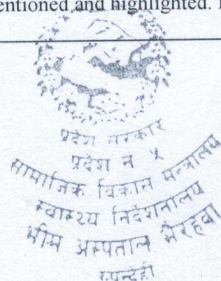 entioned and highlighted.
प्रदेश सरकार
प्रदेश नं ५
सामाजिक विकास मन्त्रालय
स्वास्थ्य निर्देशनालय
भीम अस्पताल भैरहवा
रुपन्देही